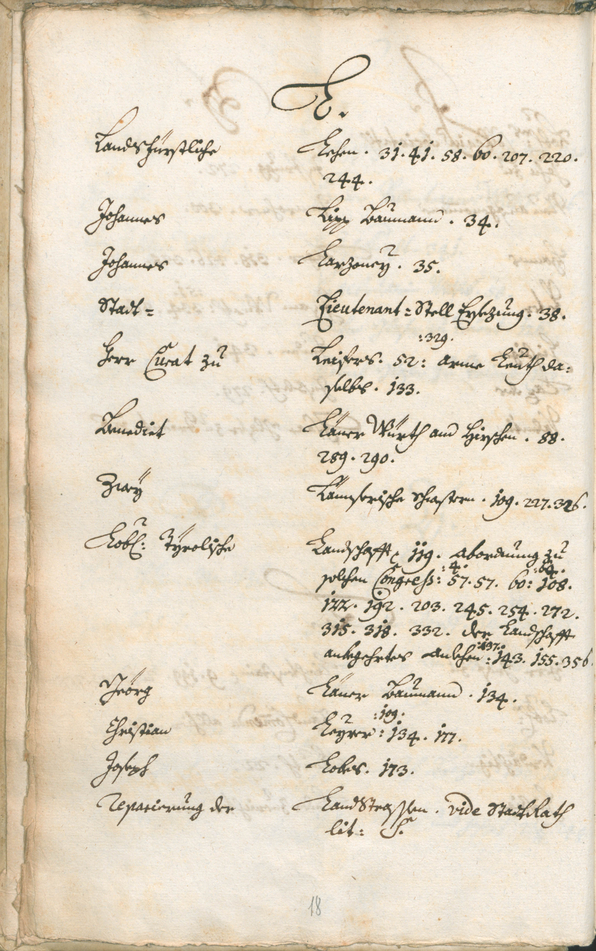 L.
Landsfürstliche Lehen . 31. 41. 58. 60. 207. 220.
244.
Johannes Lipp Baumann . 34.
Johannes Larzoneÿ . 35.
Stadt= Lieutenant=Stell Ersezung . 38.
:329.
Herr Curat zu Leifers . 52: Arme Leuth da=
selbs . 133.
Benedict Laner Würth am Hirschen . 88.
289. 290.
Zweÿ Schwestern . 109. 227. 326.
Lobl: Tÿrolische Landschafft, 119. Abordnung zu
solchen Congress: 57. 57. 60: 108.
122. 192. 203. 245. 254. 272.
315. 318. 332. der Landschafft
anbegehrtes Anlehen :137: 143. 155. 356.
Jeörg Laner Baumann . 134.
:109:
Christian Leÿrer : 134. 177.
Joseph Lobis . 173.
Reparierung der LandStrassen . vide StadtRath
lit: S.
18